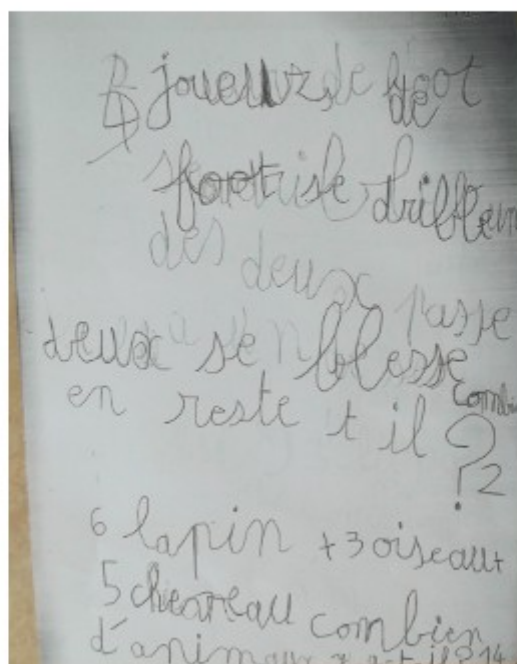 joueuz de foot
foot se dribblen
des deux passe
deux se blesse
combi
en reste t il ? 2
6 lapin + 3 oiseau +
5 chevreau combien
d'animaux y a t il ? 14